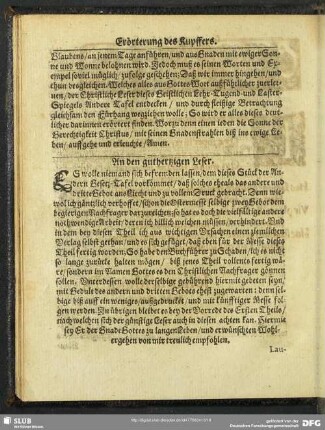 Erörterung des Kupffers.
Glaubens/ an jenem Tage anführen/ und aus Gnaden mit ewiger Son-
ne und Wonne belohnen wird. Jedoch muß es seinen Worten und Ex-
empel soviel müglich/ zufolge geschehen: Daß wir immer hingehen/ und
thun desgleichen. Welches alles aus Gottes Wort ausführlicher zuerler-
nen/ der Christliche Leser dieses Geistlichen Lehr-Tugend- und Laster-
Spiegels Andere Tafel entdecken/ und durch fleißige Betrachtung
gleichsam den Fürhang wegziehen wolle: So wird er alles dieses deut-
licher darinnen erörtert finden. Worzu denn einen jeden die Sonne der
Gerechtigkeit Christus/ mit seinen Gnadenstrahlen biß ins ewige Le-
ben/ auffgehe und erleuchte/ Amen.
An den guthertzigen Leser.
ES wolle niemand sich befremden lassen/ dem dieses Stück der An-
dern Gesetz-Tafel vorkommet/ daß solches ehe als das andere und
dritte Gebot ans Liecht und zu vollem Druck gebracht. Denn wie-
wol ich gäntzlich verhoffet/ schon die Ostermesse selbige zwey Gebot dem
begierigen Nachfrager darzureichen: so hat es doch die vielfältige andere
nothwendige Arbeit/ deren ich billich weichen müssen/ verhindert. Und
in dem bey diesem Theil ich aus eigenem Versuchen einen ziemlichen
Verlag selbst gethan/ und es sich gefüget/ daß eben für der Messe dieses
Theil fertig worden: So habe den Buchführer zu Schaden/ ich es nicht
so lange zurücke halten mögen/ biß jenes Theil vollents fertig wä-
re/ sondern im Namen Gottes es den Christlichen Nachfrager gönnen
sollen. Unterdessen wolle derselbige gebührend hiermit gebeten seyn/
mit Gedult des andern und dritten Gebots ehest zugewarten: denn sel-
bige biß auff ein weniges/ außgedrucket/ und mit künfftiger Messe folgen
werden. Im übrigen bleibet es bey der Vorrede des Ersten Theils/
nach welchen sich der günstige Leser auch in diesen achten kan. Hiermit
sey Er der Gnade Gottes zu langen Leben/ und erwünschten Wohl-
ergehen von mir treulich empfohlen.
Lau-
SLUB
Wir führen Wissen.
gefördert von der
DFG
Deutschen Forschungsgemeinschaft